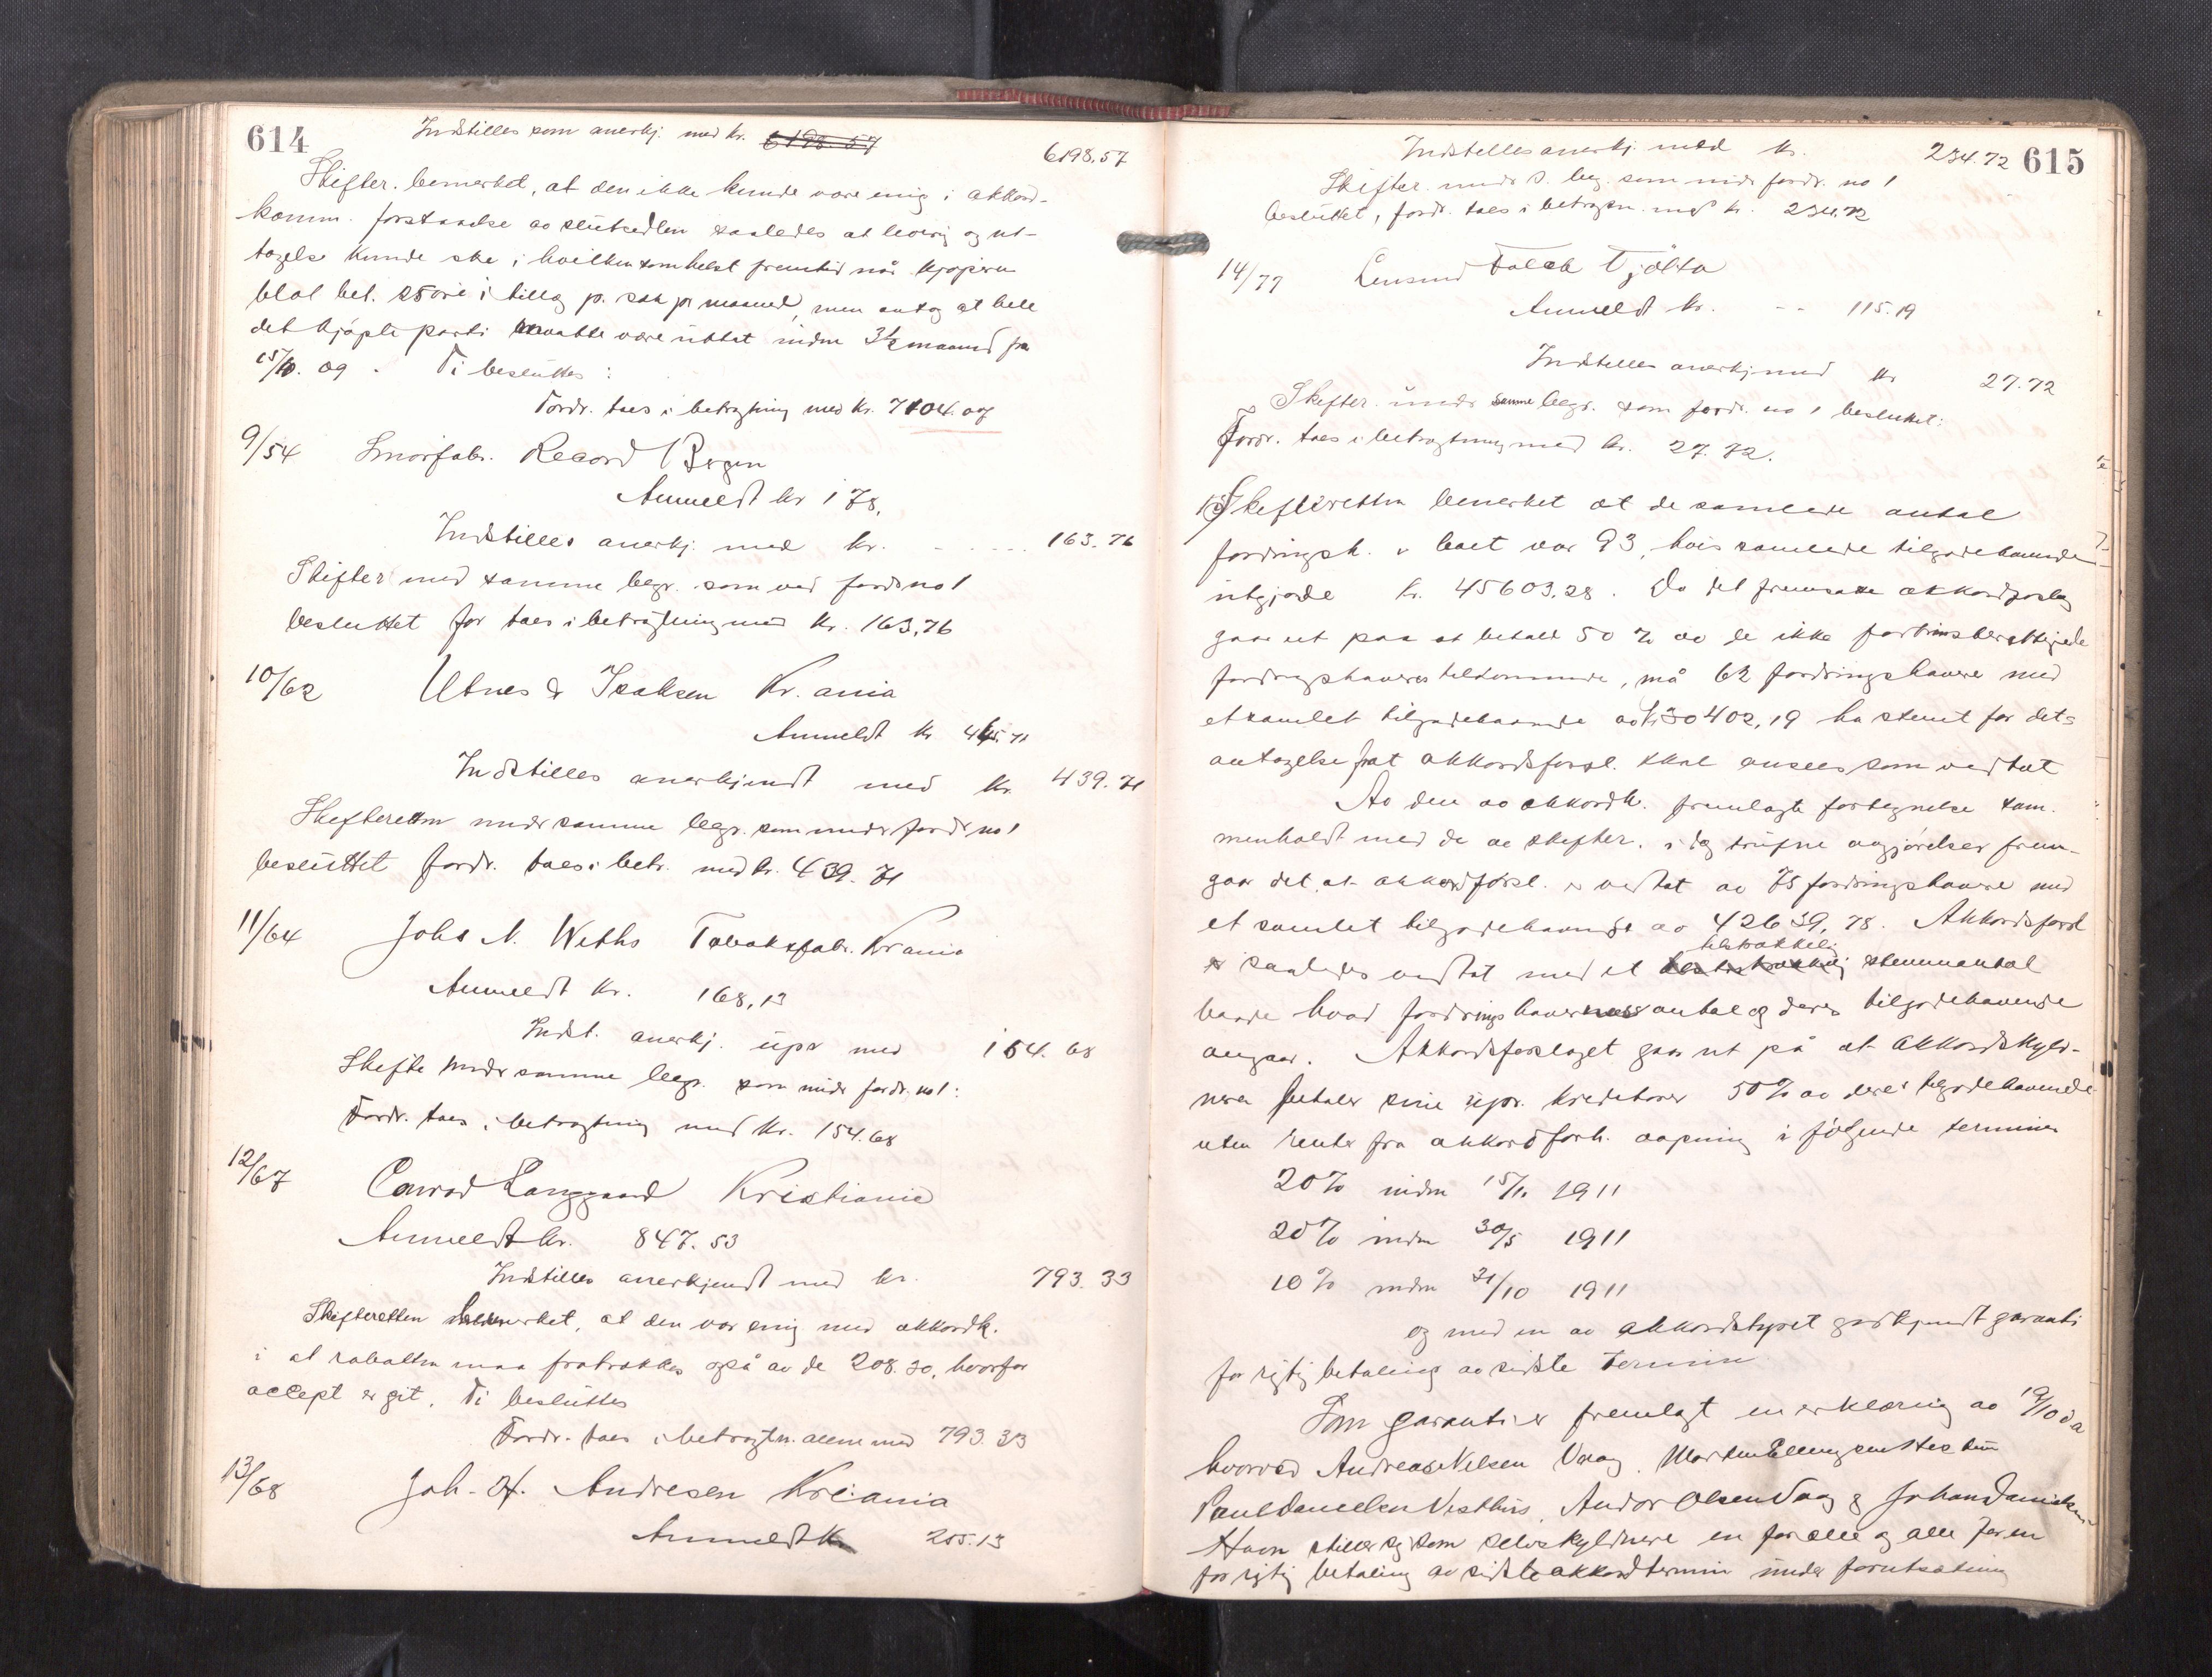 614
Indstilles som anerkj. med kr. 6198.57
6198.57
Skifter. bemerket, at den ikke kunde være enig i akkord-
komm. forstaaelse av slutsedlen saaledes at levering og ut-
tagelse kunde ske i hvilkensomhelst fremtid når kjøperen
blot bet. 25 øre i tillæg p. sæk pr maaned, men antog at hele
det kjøpte parti maatte være uttat inden 3½ maaned fra
15/10. 09. Ti besluttes:
Fordr. taes i betragtning med kr. 7104.07
9/54 Smørfabr. Record Bergen
Anmeldt kr 178,
Indstilles anerkj. med kr. 163.76
Skifter med samme begr. som ved fordr no 1
besluttet for taes i betragtning med kr. 163,76
10/62 Utnes & Isaksen Kr.ania
Anmeldt kr 445.71
Indstilles anerkjendt med kr. 439.71
Skifteretten under samme begr. som under fordr no 1
besluttet fordr. taes i betr. med kr. 439.71
11/64 Johs N. Weths Tobaksfabr. Kr ania
Anmeldt kr. 168,13
Indst. anerkj. upr med 154.68
Skifte under samme begr. som under fordr. no 1:
Fordr. taes i betragtning med kr. 154.68
12/67 Conrad Langgaard Kristiania
Anmeldt kr. 847.53
Indstilles anerkjendt med kr. 793.33
Skifteretten bemerket, at den var enig med akkordk.
i at rabatten maa fratrækkes også av de 208.30, hvorfor
accept er git. Ti besluttes
Fordr. taes i betragtn. alene med 793.33
13/68 Joh. H. Andresen Kr.ania
Anmeldt kr 255.13
615
Indstilles anerkj. med kr. 234.72
Skifter. under s. beg. som under fordr. no 1
besluttet, fordr. taes i betragtn. med kr. 234.72
14/77 Lensmd Falch Tjøtta
Anmeldt kr. -- 115.19
Indstilles anerkj med kr 27.72
Skifter. under samme begr. som fordr. no 1 besluttet:
Fordr. taes i betragtning med kr. 27.72.
Skifteretten bemerket at de samlede antal
fordringsh. i boet var 93, hvis samlede tilgodehavende
utgjorde kr. 45603,28. Da det fremsatte akkordforslag
gaar ut paa at betale 50 % av de ikke fortrinsberettigede
fordringshaveres tilkommende, må 62 fordringshavere med
et samlet tilgodehavende av kr 30402,19 ha stemt for dets
antagelse for at akkordsforsl. skal ansees som vedtat
Av den av akkordk. fremlagte fortegnelse sam-
menholdt med de av skifter. i dag trufne avgjørelser frem-
gaar det, at akkordforsl. er vedtat av 75 fordringshavere med
et samlet tilgodehavende av 42639,78. Akkordsforsl
tilstrækkelig
er saaledes vedtat med et stemmeantal
baade hvad fordringshavernes antal og deres tilgodehavende
angaar. Akkordsforslaget gaar ut på at akkordskyld-
neren betaler sine upr. kreditorer 50 % av deres tilgodehavende
uten renter fra akkordforh. aapning i følgende terminer
20 % inden 15/1. 1911
20 % inden 30/5 1911
10 % inden 31/10 1911
og med en av akkordstyret godkjendt garanti
for rigtig betaling av sidste termin
Som garanti er fremlagt en erklæring av 19/10 d a
hvorved Andreas Nelsen Vaag, Morten Ellingsen
Paul Danielsen Vesthus, Andor Olsen Vaag & Johan Danielsen
Havn stiller sig som selvskyldnere en for alle og alle for en
for rigtig betaling av sidste akkordtermin under forutsætning